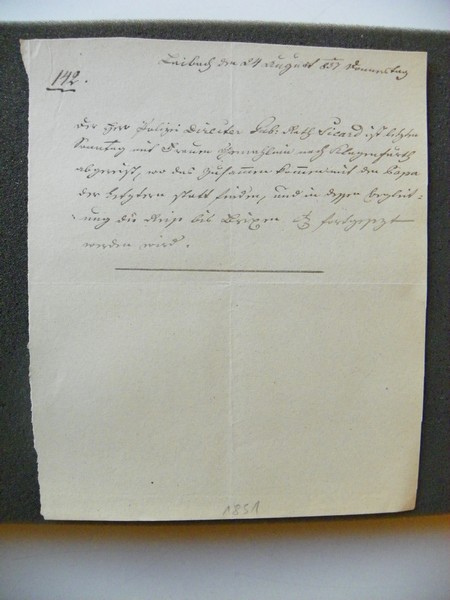 Laibach den 24 August 837 Donnerstag
142.
Der Herr Polizei Director Gub: Rath Sicard ist letzten
Sonntag mit Frauen Gemahlin nach Klagenfurth
abgereist, wo das Zusammen kommen mit dem Papa
der Letztern statt finden, und in dessen Begleit-
ung die Reise bis Brixen fortgesezt
werden wird.
1851